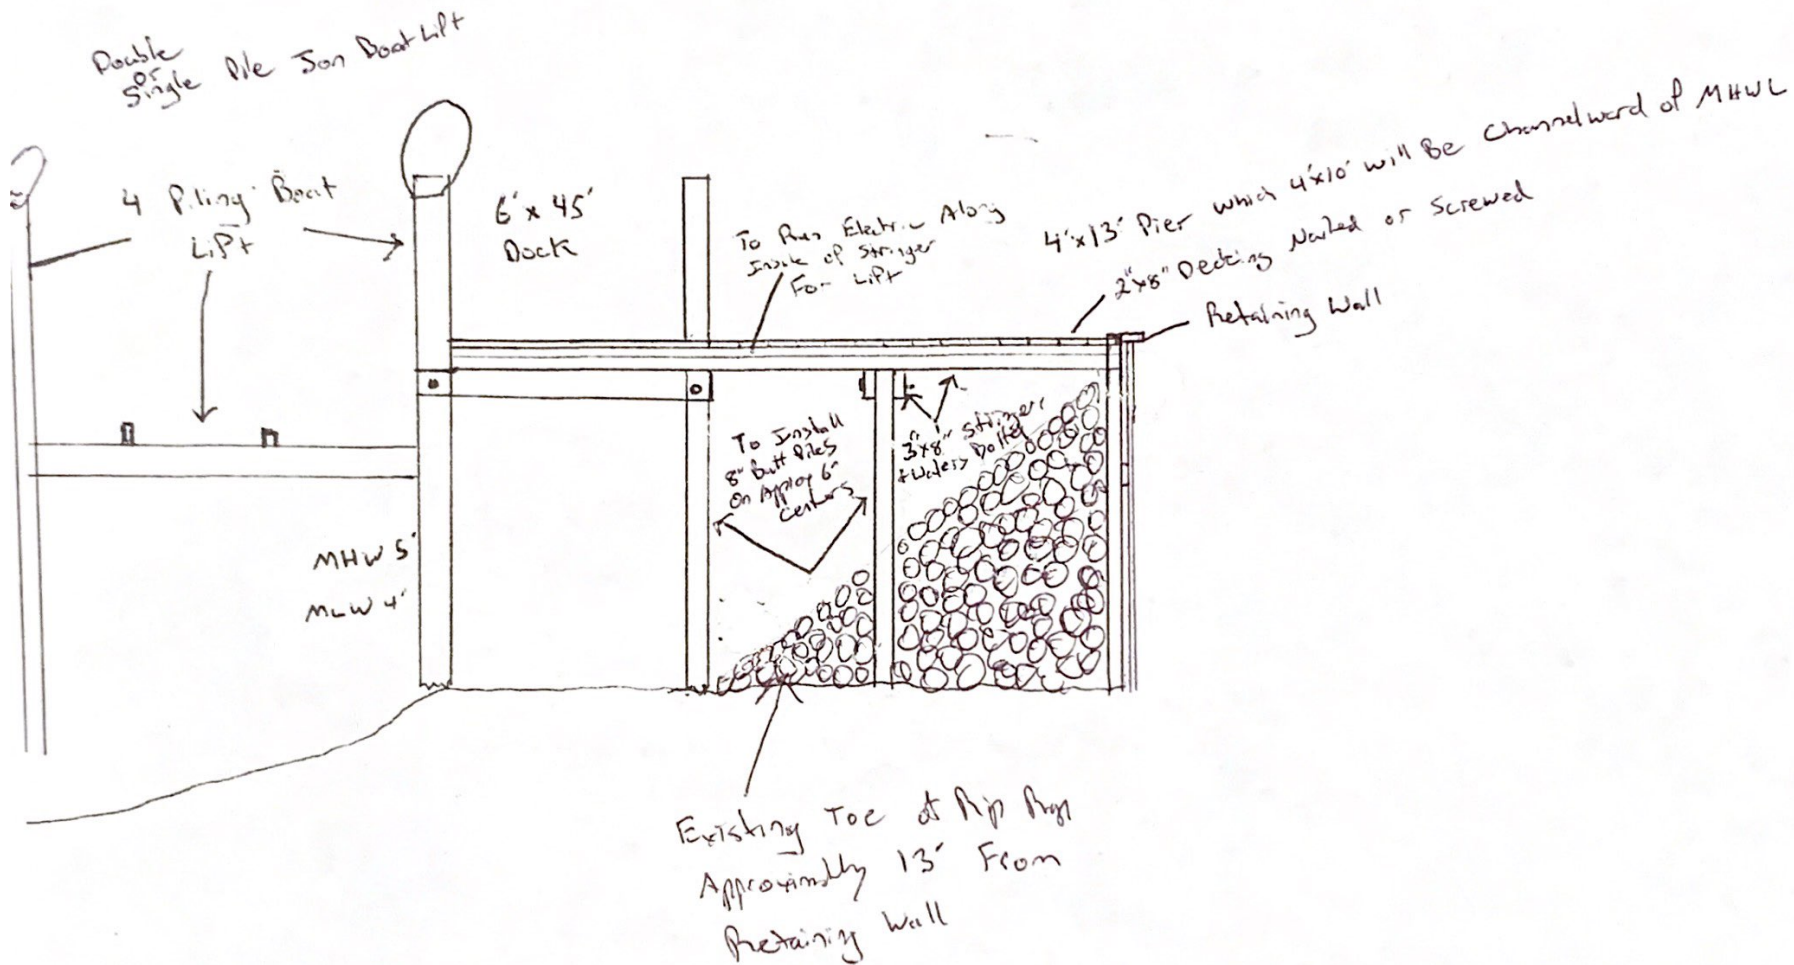 Double
or
Single Pile Jon Boat Lift
4 Piling Boat
Lift
6'x 45'
Dock
To Run Electric Along
Inside of Stringer
For Lift
4'x13' Pier which 4'x10' will Be Channelward of MHWL
2"x8" Decking Nailed or Screwed
Retaining Wall
To Install
8" Butt Piles
On Approx 6'
Centers
3"x8" Stringers
+ Walers Bolted
MHW 5'
MLW 4'
Existing Toe of Rip Rap
Approximately 13' From
Retaining Wall